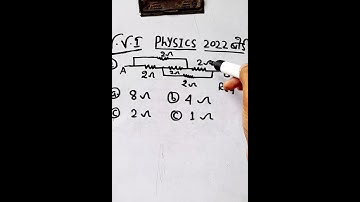 V.V.I PHYSICS 2022 के
2Ω
A 2Ω 2Ω 2Ω
2Ω
(a) 8Ω (b) 4Ω
(c) 2Ω (c) 1Ω